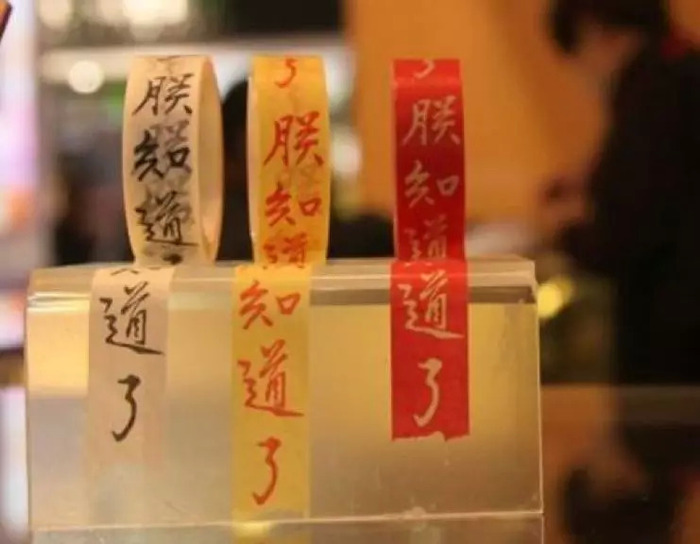 朕知道
道了
了朕知道
知道了
了朕知道
道了